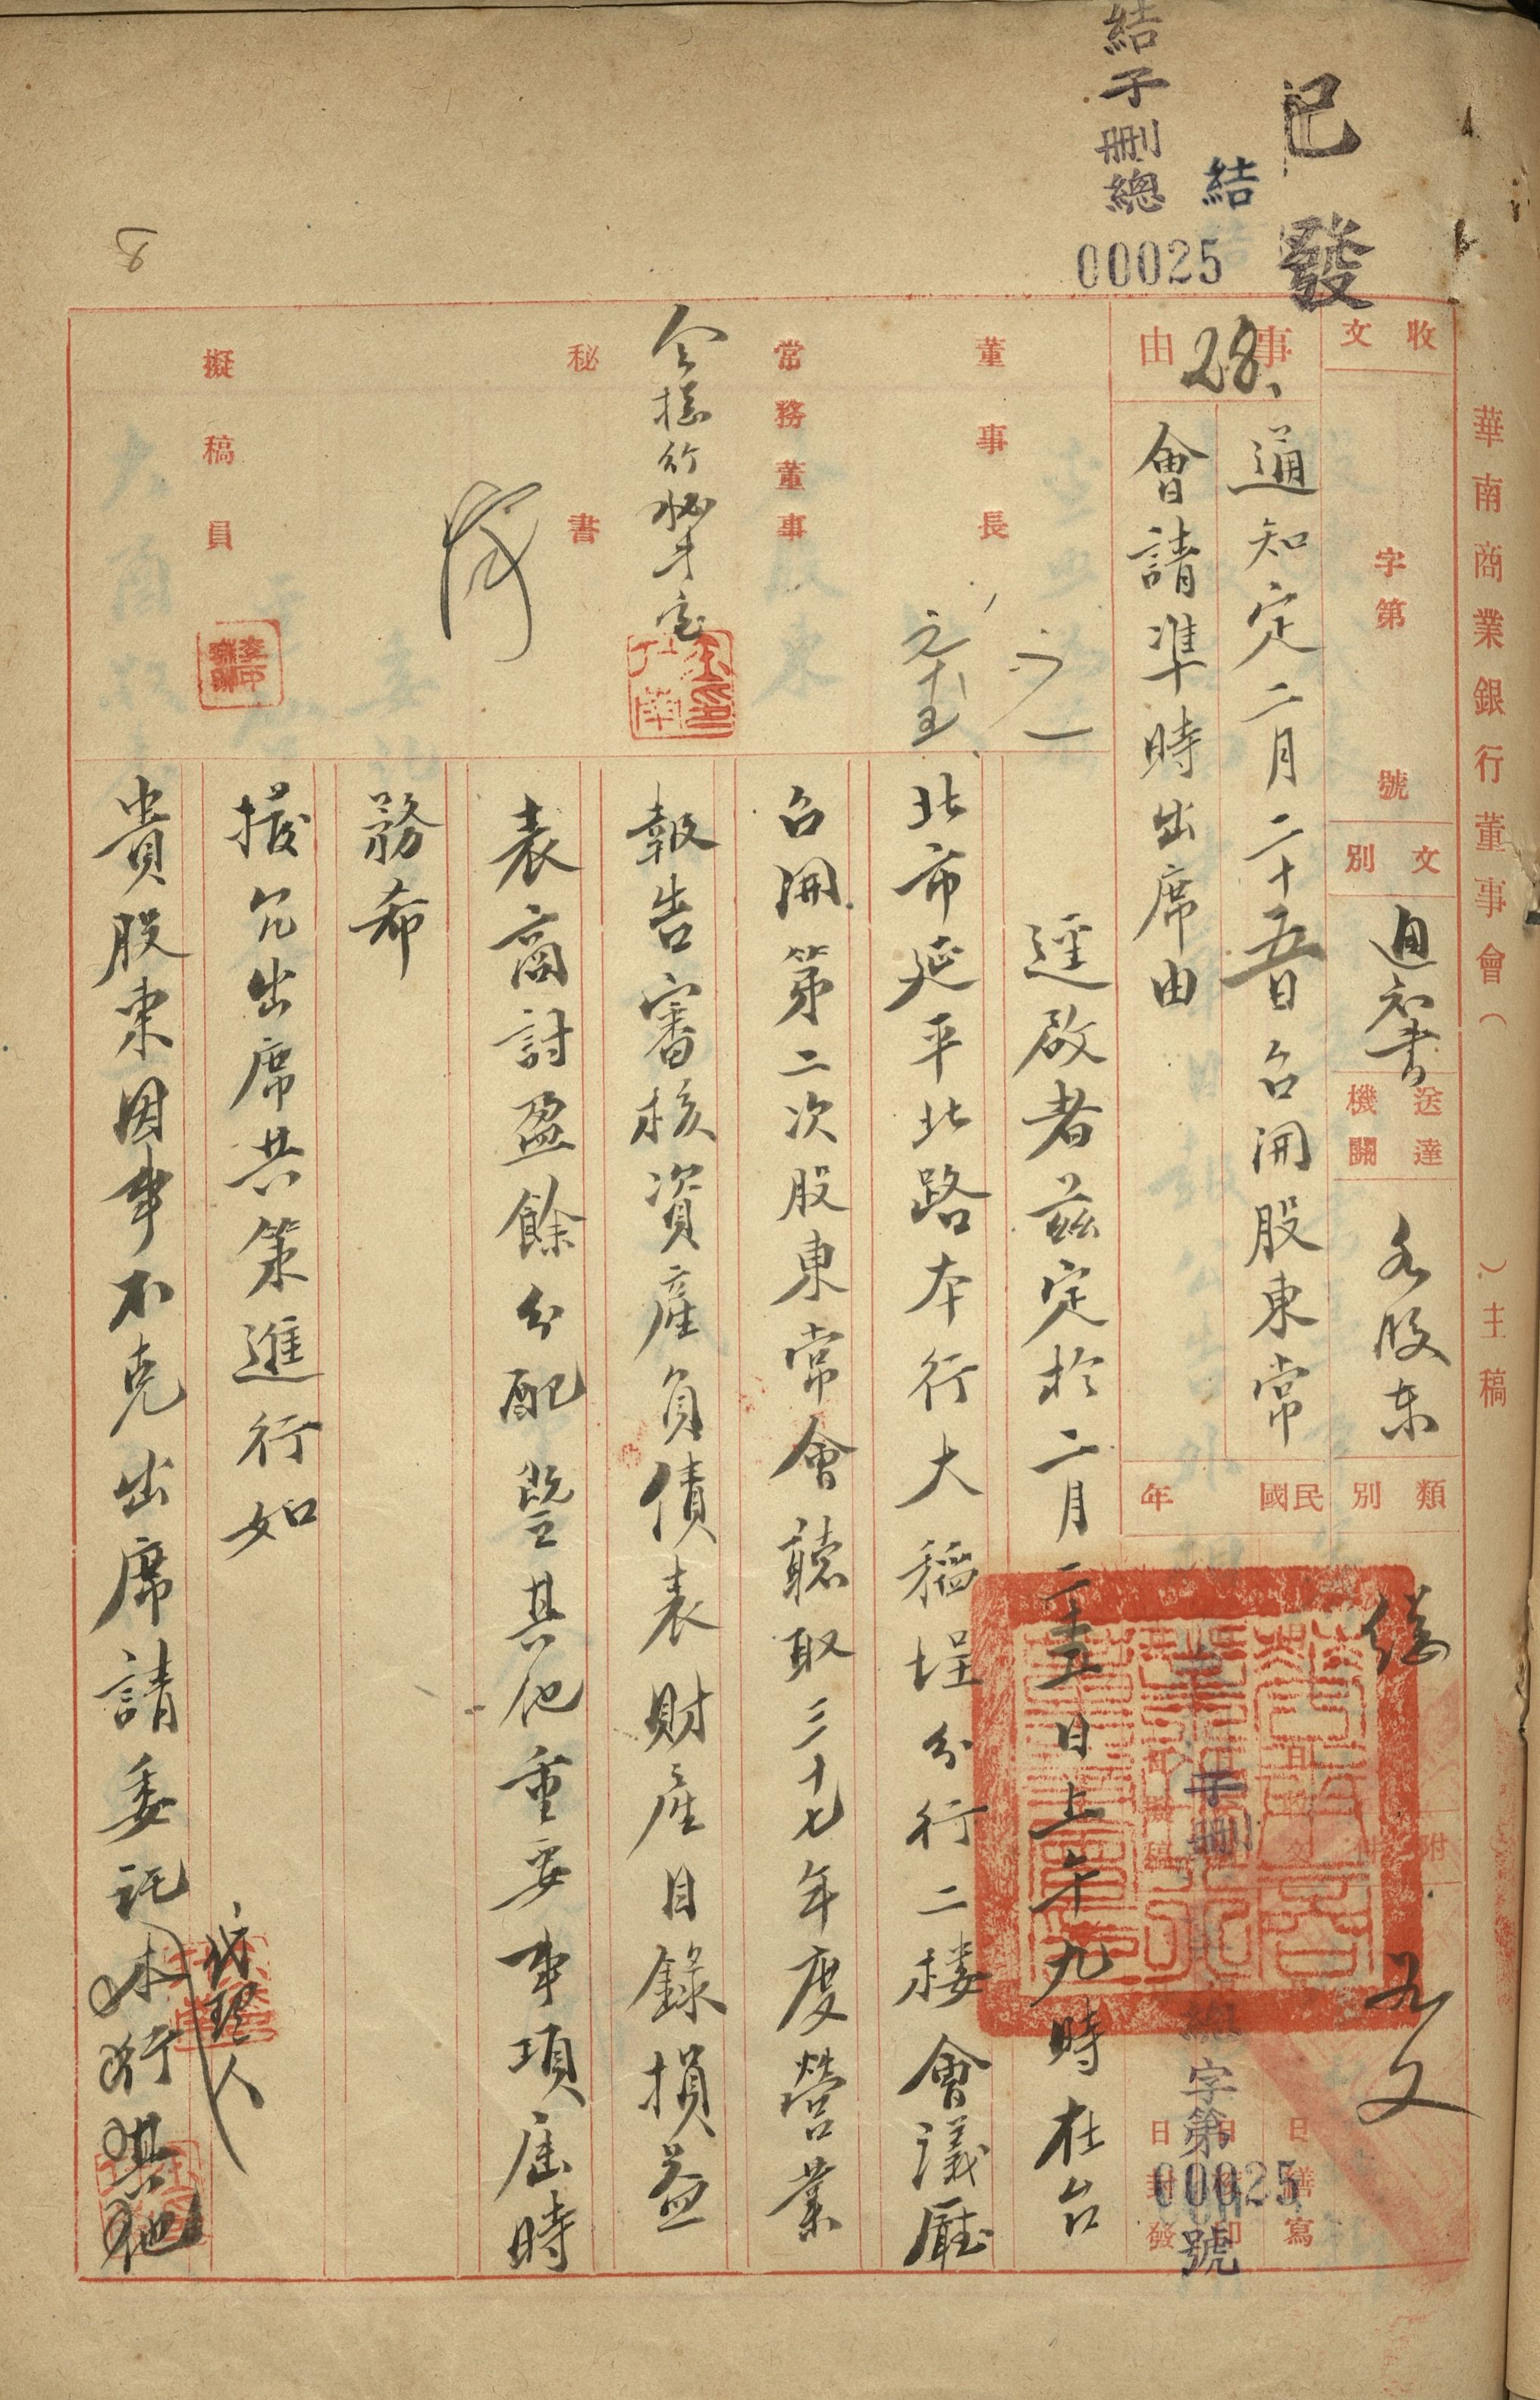 華南商業銀行董事會（　）主稿
已發
結
結子刪總
00025
收文
字第
號
文別
通知書
送達機關
各股東
類別
附件
事由
28、
通知定二月二十五日召開股東常
會請準時出席由
民國
年
子刪
總
字第
00025
號
日繕寫
日封發
董事長
常務董事
秘書
擬稿員
逕啟者茲定於二月二十五日上午九時在台
北市延平北路本行大稻埕分行二樓會議廳
召開第二次股東常會聽取三十七年度營業
報告審核資產負債表財產目錄損益
表商討盈餘分配暨其他重要事項屆時
務希
撥冗出席共策進行如
貴股東因事不克出席請委託本行其他
代理人
8